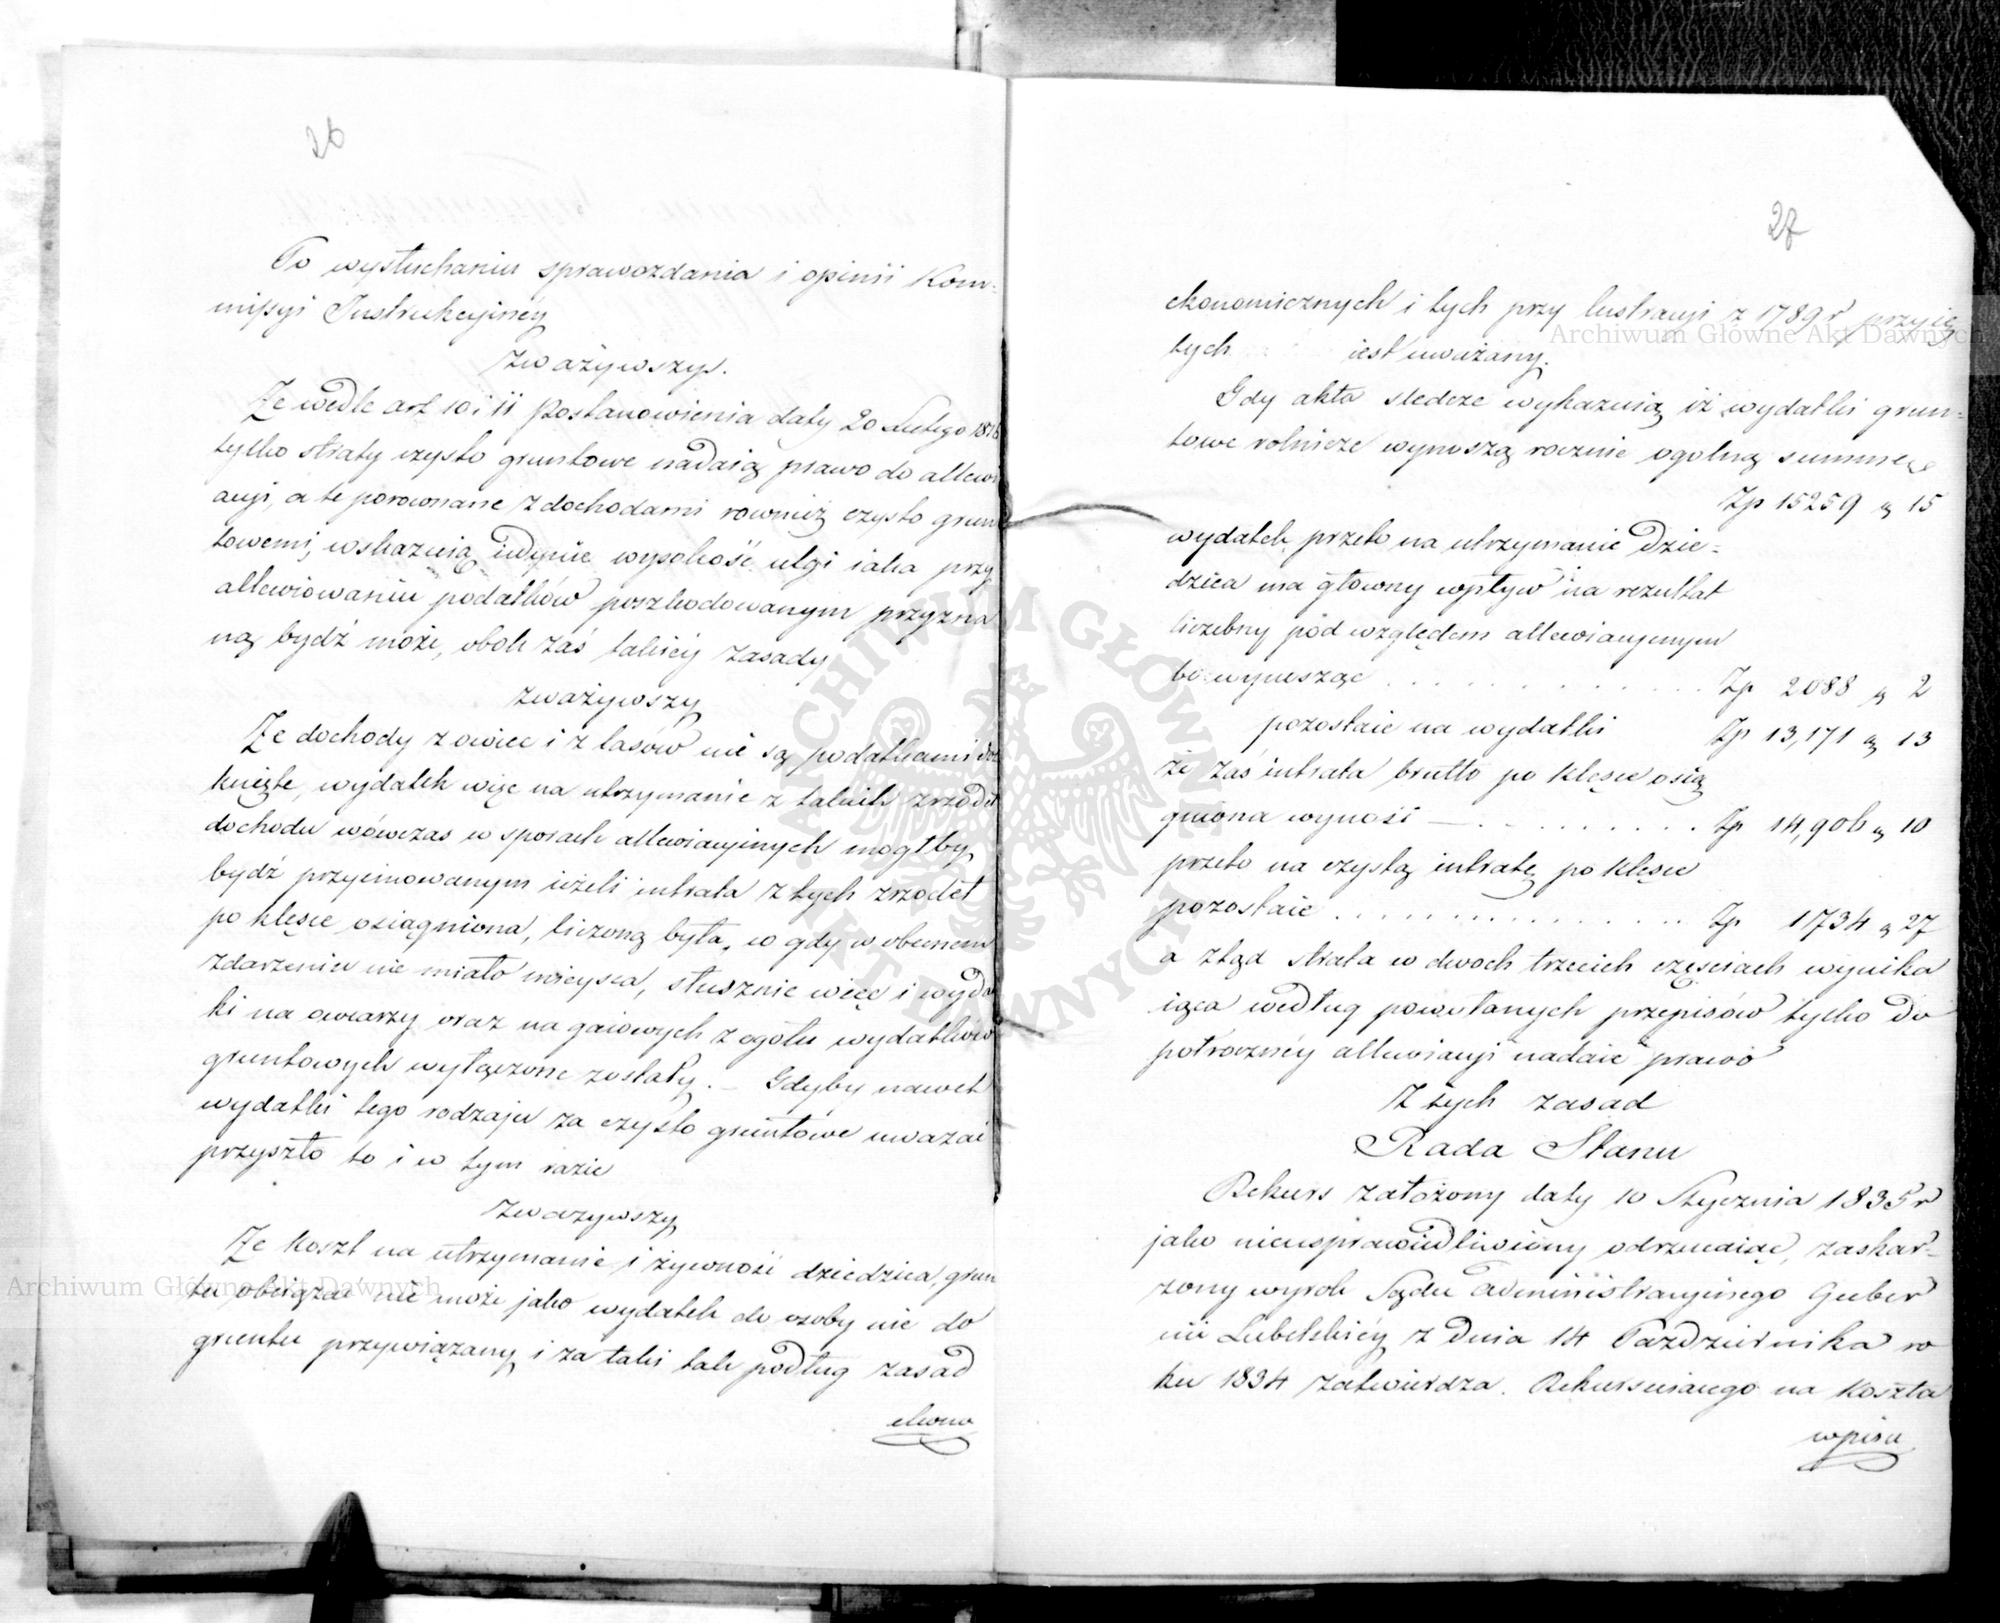 26
Po wysłuchaniu sprawozdania i opinii Kom=
missyi Instrukcyinéy
Zważywszy.
Że wedle art 10 i 11 Postanowienia daty 20 Lutego 1816
tylko straty czysto gruntowe nadaią prawo do allewi
acyi, a te porównane z dochodami również czysto grun
towemi, wskazuią iedynie wysokość ulgi iaka przy
allewiowaniu podatków poszkodowanym przyzna
ną bydź może, obok zaś takiéy zasady
zważywszy
Że dochody z owiec i z lasów nie są podatkami do
knięte, wydatek więc na utrzymanie z takich zrzódeł
dochodu wówczas w sporach allewiacyinych mógłby
bydź przyimowanym ieżeli intrata z tych zrzódeł
po klęsce osiągniona, liczoną była, co gdy w obecnem
zdarzeniu nie miało mieysca, słusznie więc i wydat
ki na owczarzy oraz na gaiowych z ogółu wydatków
gruntowych wyłączone zostały. – Gdyby nawet
wydatki tego rodzaju za czysto gruntowe uważać
przyszło to i w tym razie
Zważywszy
Że koszt na utrzymanie i żywność dziedzica, grun
tu obciążać nie może jako wydatek do osoby nie do
gruntu przywiązany i za taki tak podług zasad
ekono
27
ekonomicznych i tych przy lustracyi z 1789 r przyię
tych iest uważany.
Gdy akta śledcze wykazuią iż wydatki grun=
towe rolnicze wynoszą rocznie ogolną summę
Zp 15259 g 15
wydatek przeto na utrzymanie dzie=
dzica ma główny wpływ na rezultat
liczebny pod względem allewiacyinym
bo wynosząc . . . . . . . . . . . . . . Zp 2088 g 2
pozostaie na wydatki Zp 13,171 g 13
że zaś intrata brutto po klęsce osią
gniona wynosi — . . . . . . . . . Zp 14,906 g 10
przeto na czystą intratę po klęsce
pozostaie . . . . . . . . . . . . . . . . Zp 1734 g 27
a ztąd strata w dwoch trzecich częściach wynika
iąca według powołanych przepisów tylko do
półroczney allewiacyi nadaie prawo
Z tych zasad
Rada Stanu
Rekurs założony daty 10 Stycznia 1835 r
jako nieusprawiedliwiony odrzucaiąc, zaskar=
żony wyrok Sądu Administracyinego Guber
nii Lubelskiéy z dnia 14 Października ro
ku 1834 zatwierdza. Rekursuiącego na koszta
wpisu
Archiwum Główne Akt Dawnych
Archiwum Główne Akt Dawnych
ARCHIWUM GŁÓWNE AKT DAWNYCH